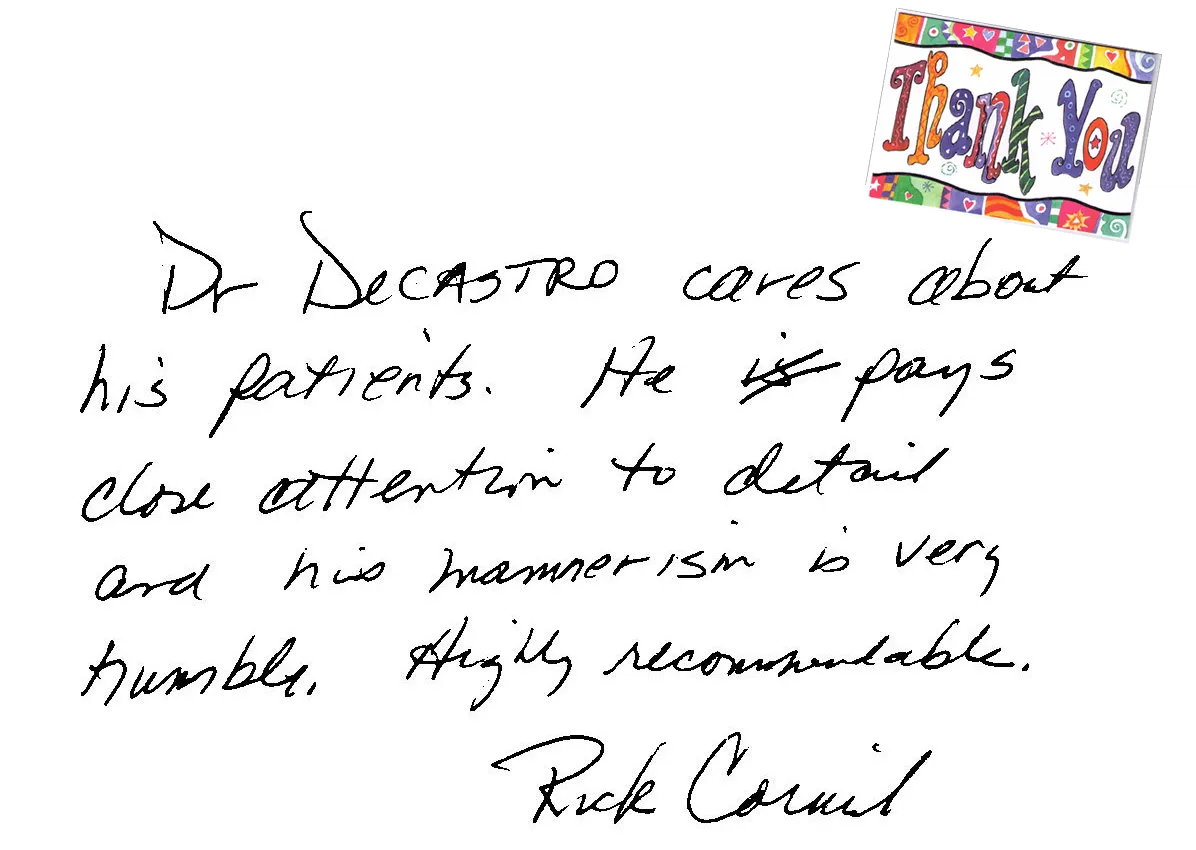 Thank You
Dr DeCASTRO cares about
his patients. He is pays
close attention to detail
and his mannerism is very
humble. Highly recommendable.
Rick